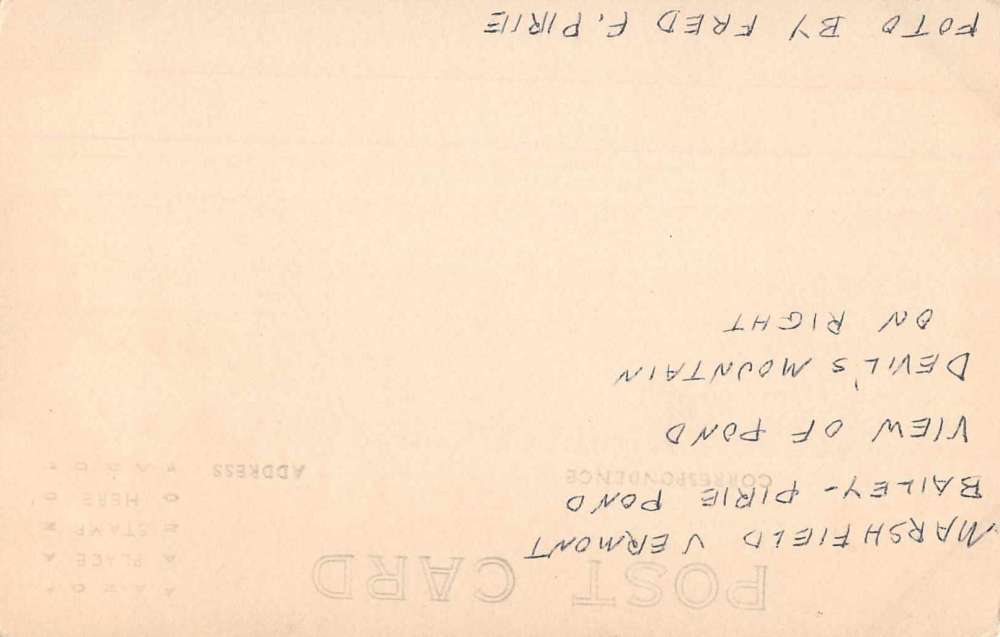 POST CARD
MARSHFIELD VERMONT
BAILEY-PIRIE POND
VIEW OF POND
DEVIL'S MOUNTAIN
ON RIGHT
FOTO BY FRED F. PIRIE
CORRESPONDENCE
ADDRESS
AZO
PLACE
STAMP
HERE
AZO